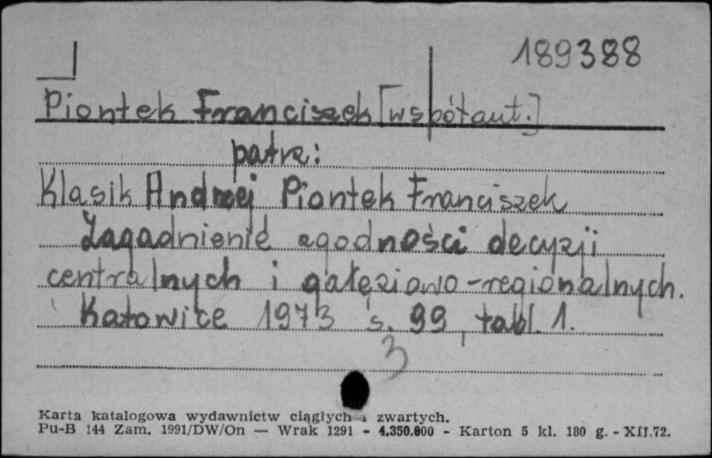 189388
Piontek Franciszek [współaut.]
patrz:
Klasik Andrzej Piontek Franciszek
Zagadnienie zgodności decyzji
centralnych i gałęziowo-regionalnych.
Katowice 1973 s. 99, tabl. 1.
3
Karta katalogowa wydawnictw ciągłych i zwartych.
Pu-B 144 Zam. 1991/DW/On — Wrak 1291 - 4.350.000 - Karton 5 kl. 180 g. - XII.72.